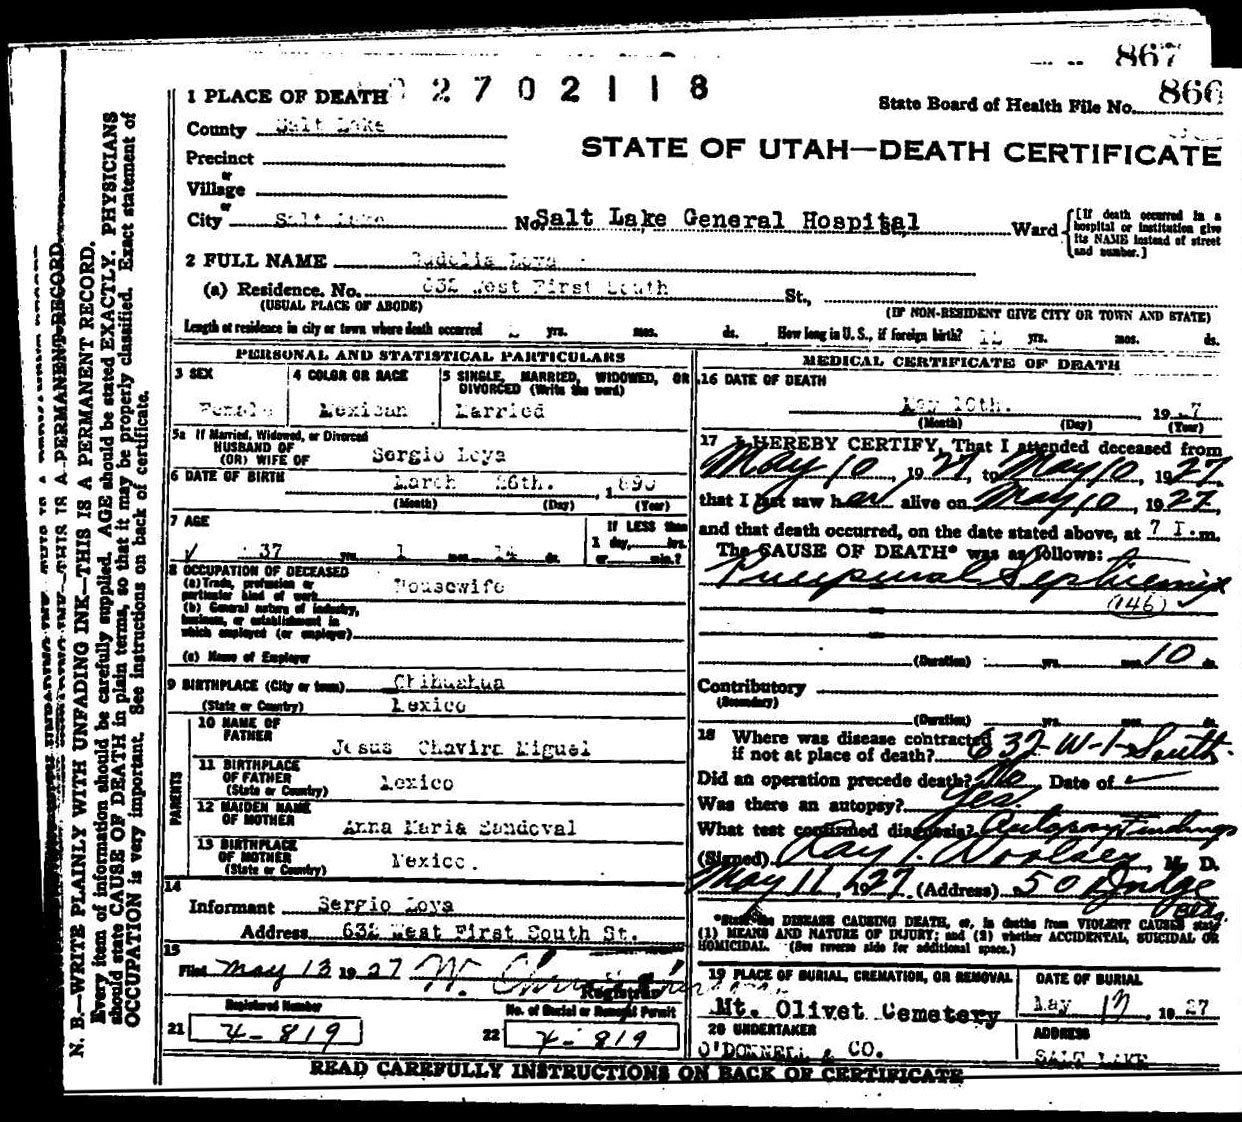 867
2 7 0 2 1 1 8
1 PLACE OF DEATH
State Board of Health File No. 866
County Salt Lake
STATE OF UTAH—DEATH CERTIFICATE
Precinct
or
Village
or
City Salt Lake No. Salt Lake General Hospital St., Ward [If death occurred in a hospital or institution give its NAME instead of street and number.]
2 FULL NAME Loya
(a) Residence. No. 632 West First South St.,
(USUAL PLACE OF ABODE) (IF NON-RESIDENT GIVE CITY OR TOWN AND STATE)
Length of residence in city or town where death occurred yrs. mos. ds. How long in U. S., if foreign birth? 12 yrs. mos. ds.
PERSONAL AND STATISTICAL PARTICULARS
3 SEX
Female
4 COLOR OR RACE
Mexican
5 SINGLE, MARRIED, WIDOWED, OR DIVORCED (Write the word)
Married
5a If Married, Widowed, or Divorced
HUSBAND OF
(OR) WIFE OF Sergio Loya
6 DATE OF BIRTH March 26th. , 1890
(Month) (Day) (Year)
7 AGE
37 yrs. 1 mos. 14 ds.
If LESS than
1 day, hrs.
or min.?
8 OCCUPATION OF DECEASED
(a) Trade, profession or
particular kind of work Housewife
(b) General nature of industry,
business, or establishment in
which employed (or employer)
(c) Name of Employer
9 BIRTHPLACE (City or town) Chihuahua
(State or Country) Mexico
PARENTS
10 NAME OF
FATHER Jesus Chavira Miguel
11 BIRTHPLACE
OF FATHER
(State or Country) Mexico
12 MAIDEN NAME
OF MOTHER Anna Maria Sandoval
13 BIRTHPLACE
OF MOTHER
(State or Country) Mexico.
14
Informant Sergio Loya
Address 632 West First South St.
15
Filed May 13 1927 W.
Registrar
Registered Number
21 4-819
No. of Burial or Removal Permit
22 4-819
MEDICAL CERTIFICATE OF DEATH
16 DATE OF DEATH
May 10th. 1927
(Month) (Day) (Year)
17 I HEREBY CERTIFY, That I attended deceased from
May 10, 1927, to May 10, 1927,
that I last saw her alive on May 10, 1927,
and that death occurred, on the date stated above, at 7 m.
The CAUSE OF DEATH* was as follows:
Puerperal Septicemia
(146)
(Duration) yrs. mos. 10 ds.
Contributory
(Secondary)
(Duration) yrs. mos. ds.
18 Where was disease contracted
if not at place of death? 632-W-1-South
Did an operation precede death? No Date of
Was there an autopsy? Yes.
What test confirmed diagnosis? Autopsy Findings
(Signed) Ray T. Woolsey, M. D.
May 11, 1927 (Address) 50 Judge Bldg.
*State the DISEASE CAUSING DEATH, or, in deaths from VIOLENT CAUSES state
(1) MEANS AND NATURE OF INJURY; and (2) whether ACCIDENTAL, SUICIDAL OR
HOMICIDAL. (See reverse side for additional space.)
19 PLACE OF BURIAL, CREMATION, OR REMOVAL
Mt. Olivet Cemetery
DATE OF BURIAL
May 1927
20 UNDERTAKER
O'DONNELL & CO.
ADDRESS
SALT LAKE
READ CAREFULLY INSTRUCTIONS ON BACK OF CERTIFICATE
N. B.—WRITE PLAINLY WITH UNFADING INK—THIS IS A PERMANENT RECORD.
Every item of information should be carefully supplied. AGE should be stated EXACTLY. PHYSICIANS
should state CAUSE OF DEATH in plain terms, so that it may be properly classified. Exact statement of
OCCUPATION is very important. See instructions on back of certificate.